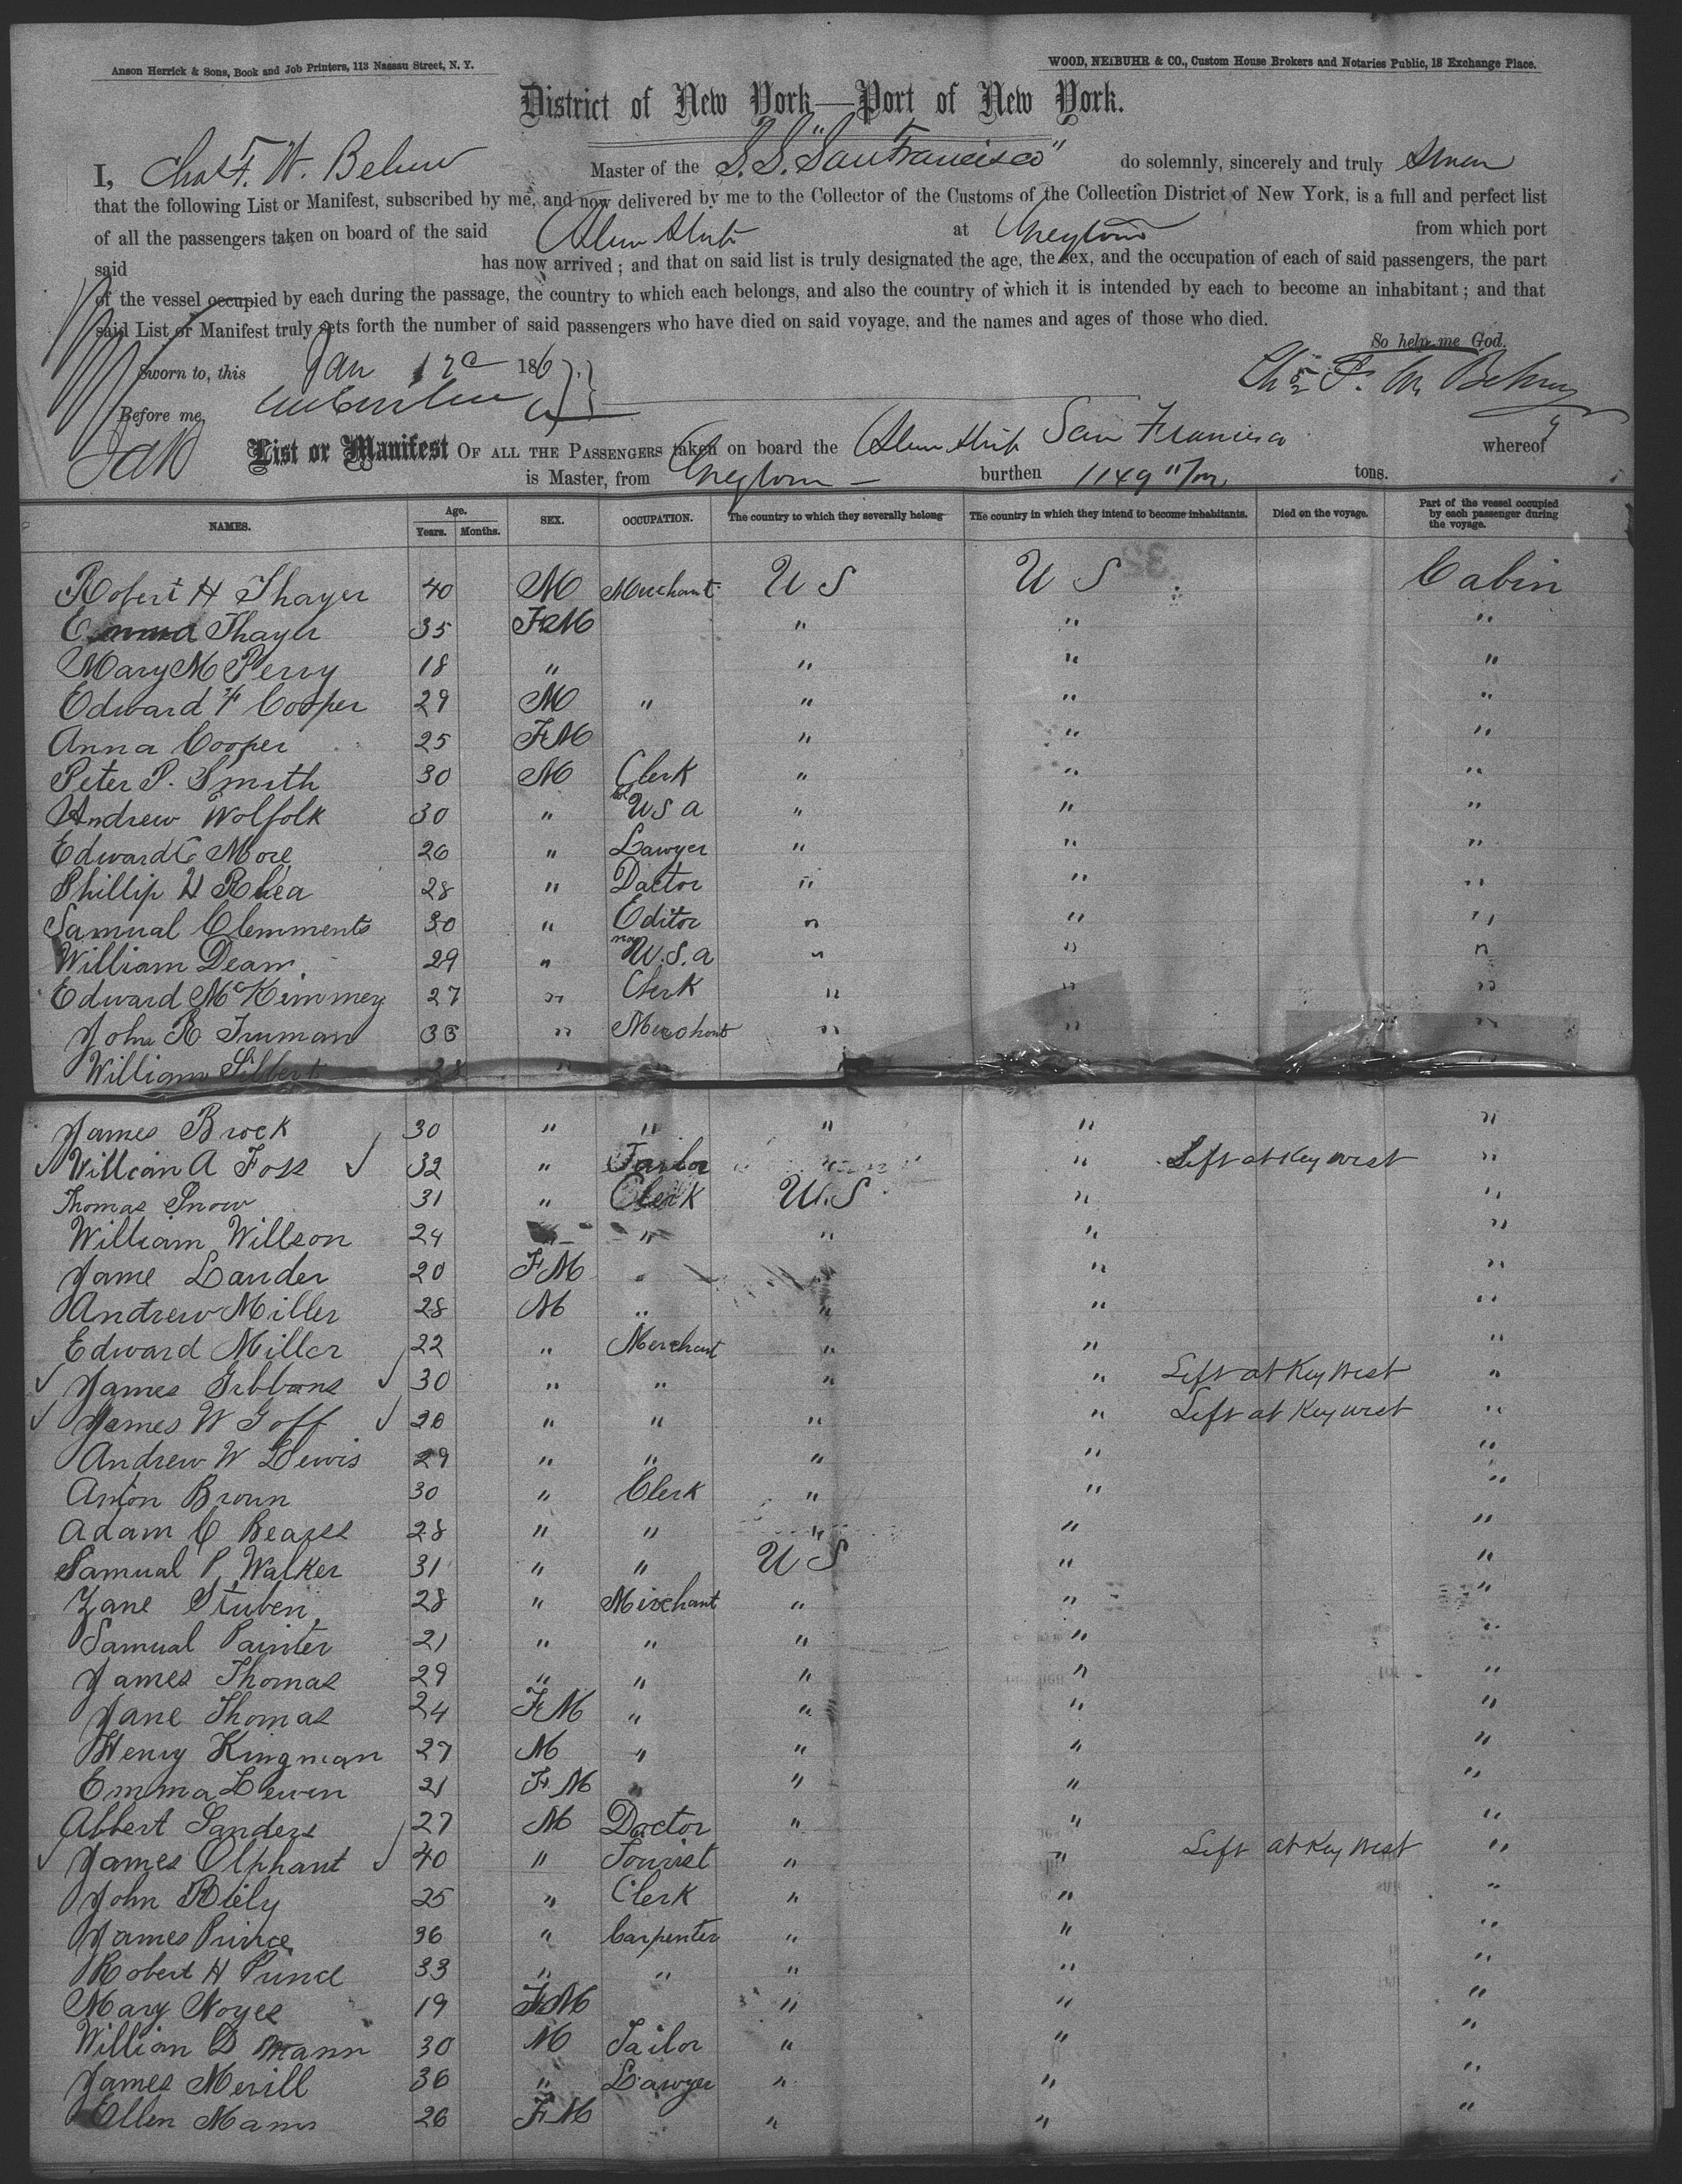 Anson Herrick & Sons, Book and Job Printers, 113 Nassau Street, N. Y.
WOOD, NEIBUHR & CO., Custom House Brokers and Notaries Public, 18 Exchange Place.
District of New York—Port of New York.
I, Chas F. W. Behm Master of the S.S. "San Francisco" do solemnly, sincerely and truly swear
that the following List or Manifest, subscribed by me, and now delivered by me to the Collector of the Customs of the Collection District of New York, is a full and perfect list
of all the passengers taken on board of the said Steam Ship at Greytown from which port
said has now arrived ; and that on said list is truly designated the age, the sex, and the occupation of each of said passengers, the part
of the vessel occupied by each during the passage, the country to which each belongs, and also the country of which it is intended by each to become an inhabitant ; and that
said List or Manifest truly sets forth the number of said passengers who have died on said voyage, and the names and ages of those who died.
So help me God.
Sworn to, this Jan 186
Before me,
List or Manifest OF ALL THE PASSENGERS taken on board the Steam Ship San Francisco whereof
is Master, from Greytown burthen 1149 tons.
NAMES. Age. Years. Months. SEX. OCCUPATION. The country to which they severally belong The country in which they intend to become inhabitants. Died on the voyage. Part of the vessel occupied by each passenger during the voyage.
Robert H Thayer 40 M Merchant U S U S Cabin
Emma Thayer 35 FM " " "
Mary M Perry 18 " " " "
Edward F Cooper 29 M " " " "
Anna Cooper 25 FM " " "
Peter P. Smith 30 M Clerk " " "
Andrew Wolfolk 30 " Col U S A " " "
Edward C More 26 " Lawyer " " "
Phillip H Rhea 28 " Doctor " " "
Samual Clemments 30 " Editor " " "
William Dean 29 " U.S.A " " "
Edward McKimmey 27 " Clerk " " "
John R Truman 33 " Merchant " " "
William Silbert 28 " "
James Brock 30 " " " " "
William A Foss 32 " Tailor " " Left at Key West "
Thomas Snow 31 " Clerk U.S " "
William Willson 24 " " " "
Jame Lander 20 FM " " " "
Andrew Miller 28 M " " " "
Edward Miller 22 " Merchant " " "
James Gibbons 30 " " " " Left at Key West "
James W Goff 20 " " " " Left at Key West "
Andrew W Lewis 29 " " " " "
Anton Brown 30 " Clerk " " "
Adam C Bearss 28 " " " " "
Samual P Walker 31 " " U S " "
Zane Stuben 28 " Merchant " " "
Samual Painter 21 " " " " "
James Thomas 29 " " " " "
Jane Thomas 24 FM " " " "
Henry Kingman 27 M " " " "
Emma Lewen 21 FM " " " "
Albert Sanders 27 M Doctor " " "
James Olphant 40 " Tourist " " Left at Key West "
John Riely 25 " Clerk " " "
James Prince 36 " Carpenter " " "
Robert H Pund 33 " " " " "
Mary Noyes 19 FM " " "
William D Mann 30 M Tailor " " "
James Merill 36 " Lawyer " " "
Ellen Mann 26 FM " " "